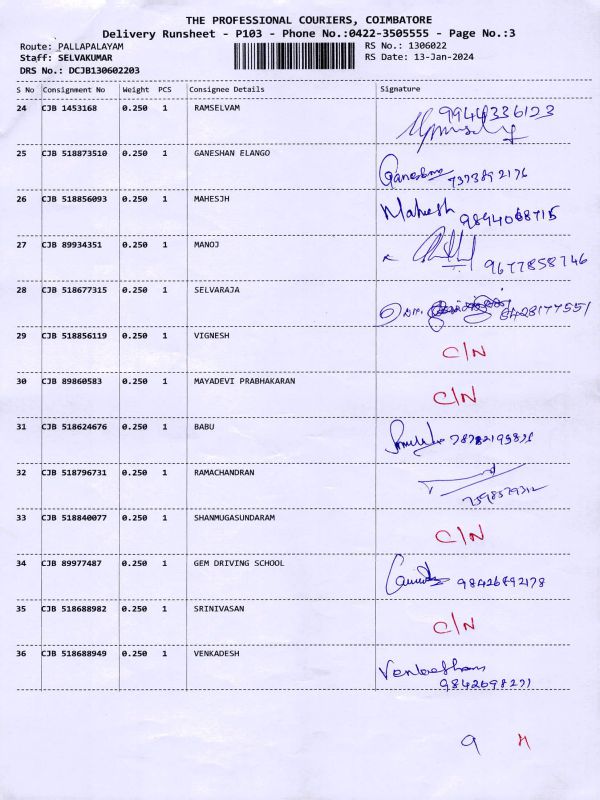 THE PROFESSIONAL COURIERS, COIMBATORE
Delivery Runsheet - P103 - Phone No.:0422-3505555 - Page No.:3
Route: PALLAPALAYAM RS No.: 1306022
Staff: SELVAKUMAR RS Date: 13-Jan-2024
DRS No.: DCJB130602203
S No Consignment No Weight PCS Consignee Details Signature
24 CJB 1453168 0.250 1 RAMSELVAM 9944336123
25 CJB 518873510 0.250 1 GANESHAN ELANGO Ganeshan 7373892176
26 CJB 518856093 0.250 1 MAHESJH Mahesh 9894068715
27 CJB 89934351 0.250 1 MANOJ 9677858746
28 CJB 518677315 0.250 1 SELVARAJA 8428177551
29 CJB 518856119 0.250 1 VIGNESH C/N
30 CJB 89860583 0.250 1 MAYADEVI PRABHAKARAN C/N
31 CJB 518624676 0.250 1 BABU
32 CJB 518796731 0.250 1 RAMACHANDRAN 7598579312
33 CJB 518840077 0.250 1 SHANMUGASUNDARAM C/N
34 CJB 89977487 0.250 1 GEM DRIVING SCHOOL 9842692178
35 CJB 518688982 0.250 1 SRINIVASAN C/N
36 CJB 518688949 0.250 1 VENKADESH 9842698271
9